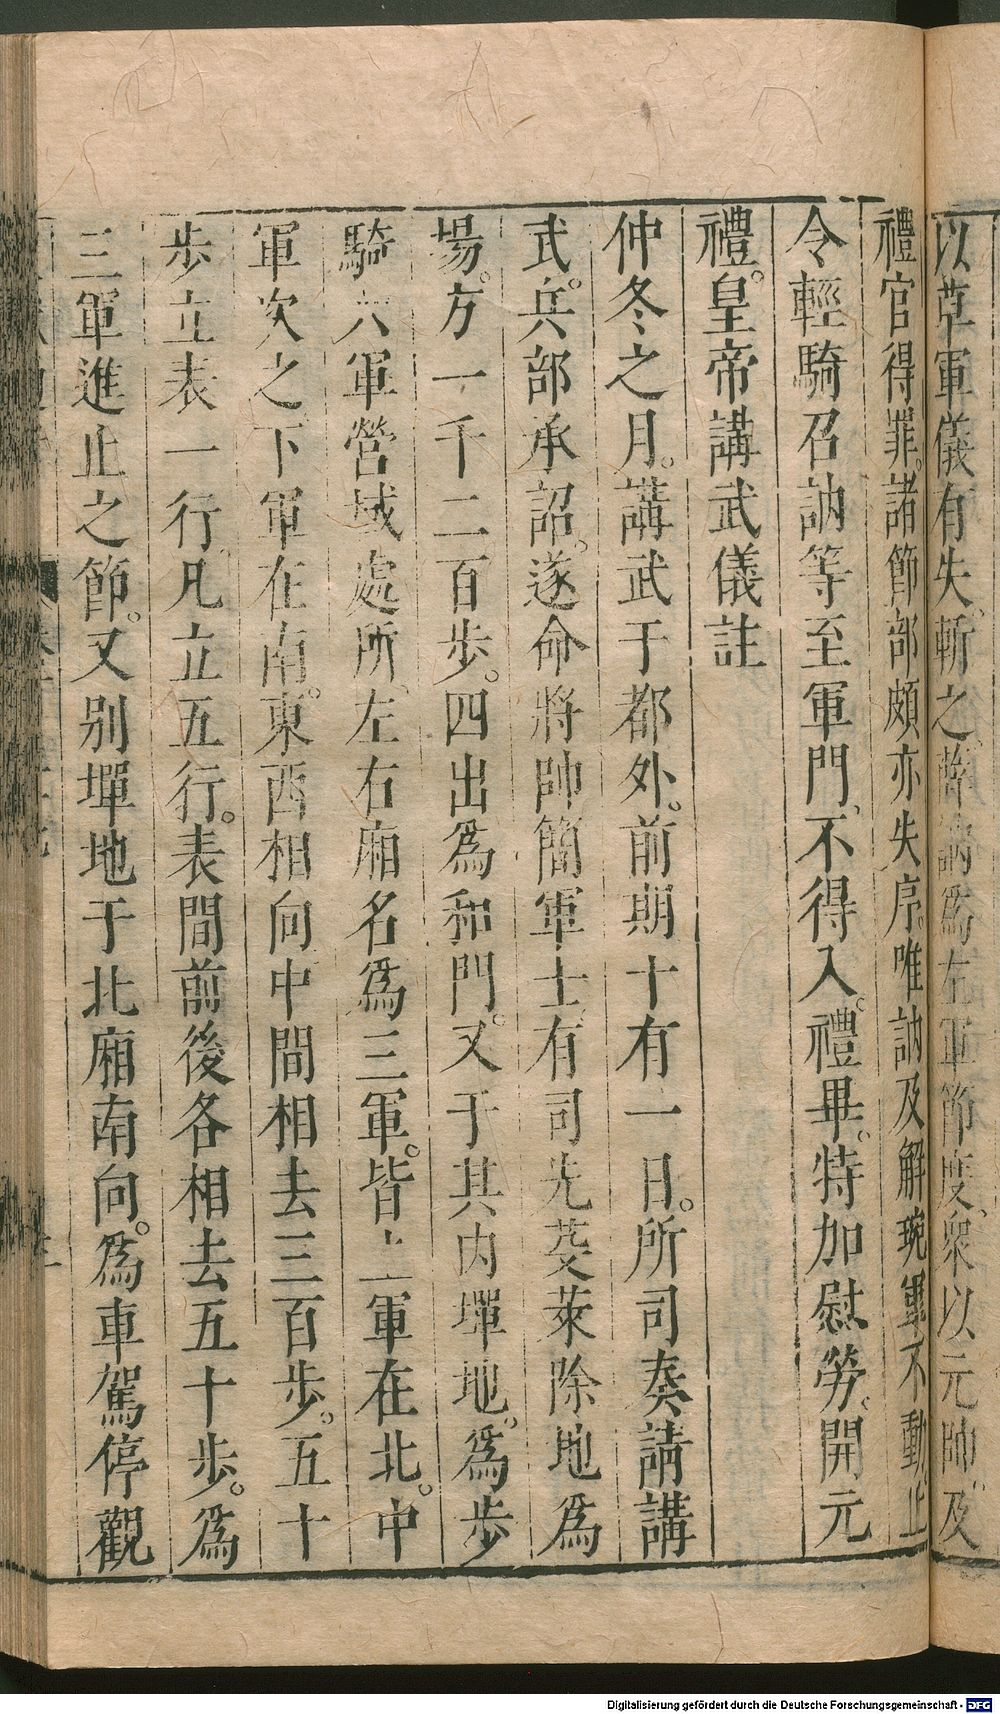 以草軍儀有失、斬之、薛訥爲左軍節度、衆以元帥。及
禮官得罪。諸節部頗亦失序。唯訥及解琬軍不動。上
令輕騎召訥等至軍門、不得入。禮畢。特加慰勞。開元
禮。皇帝講武儀註
仲冬之月。講武于都外。前期十有一日。所司奏請講
武。兵部承詔。遂命將帥簡軍士有司先芟萊除地爲
場。方一千二百步。四出爲和門。又于其內墠地。爲步
騎六軍營域處所、左右廂名爲三軍。皆上軍在北。中
軍次之下軍在南。東西相向中間相去三百步。五十
步立表一行、凡立五行。表間前後各相去五十步。爲
三軍進止之節。又別墠地于北廂南向。爲車駕停觀
Digitalisierung gefördert durch die Deutsche Forschungsgemeinschaft - DFG